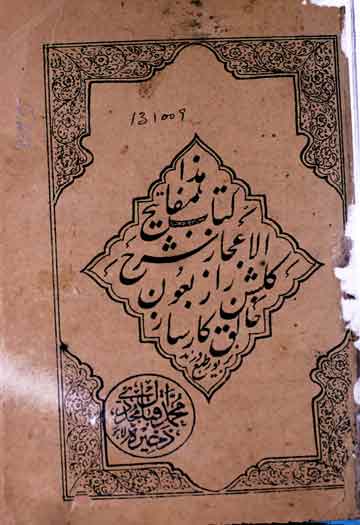 131009
هذا
کتاب مفاتیح
الاعجاز شرح
گلشن راز بعون
خالق کارساز
محمد اقبال مجددی
ذخیرہ